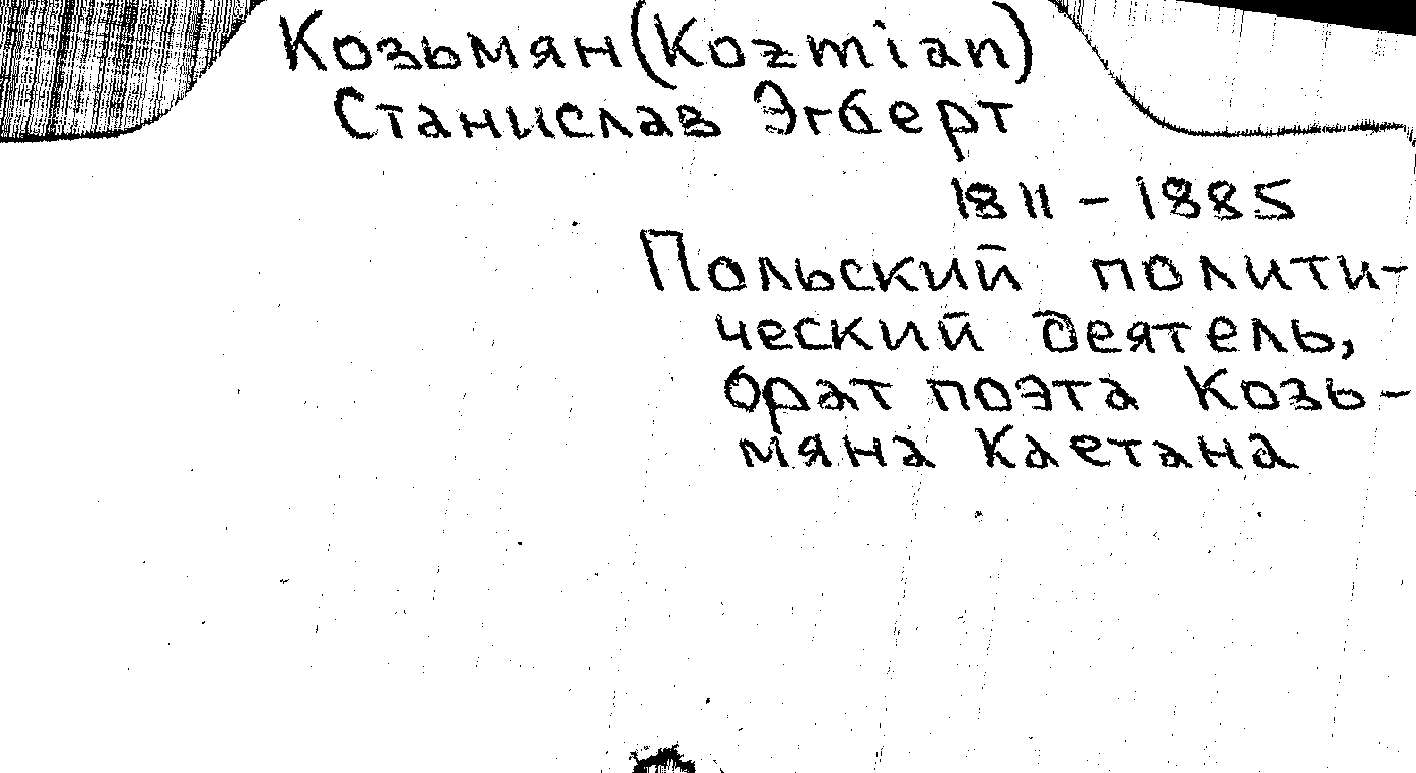 Козьмян (Kozmian)
Станислав Эгберт
1811 – 1885
Польский полити-
ческий деятель,
брат поэта Козь-
мяна Каетана